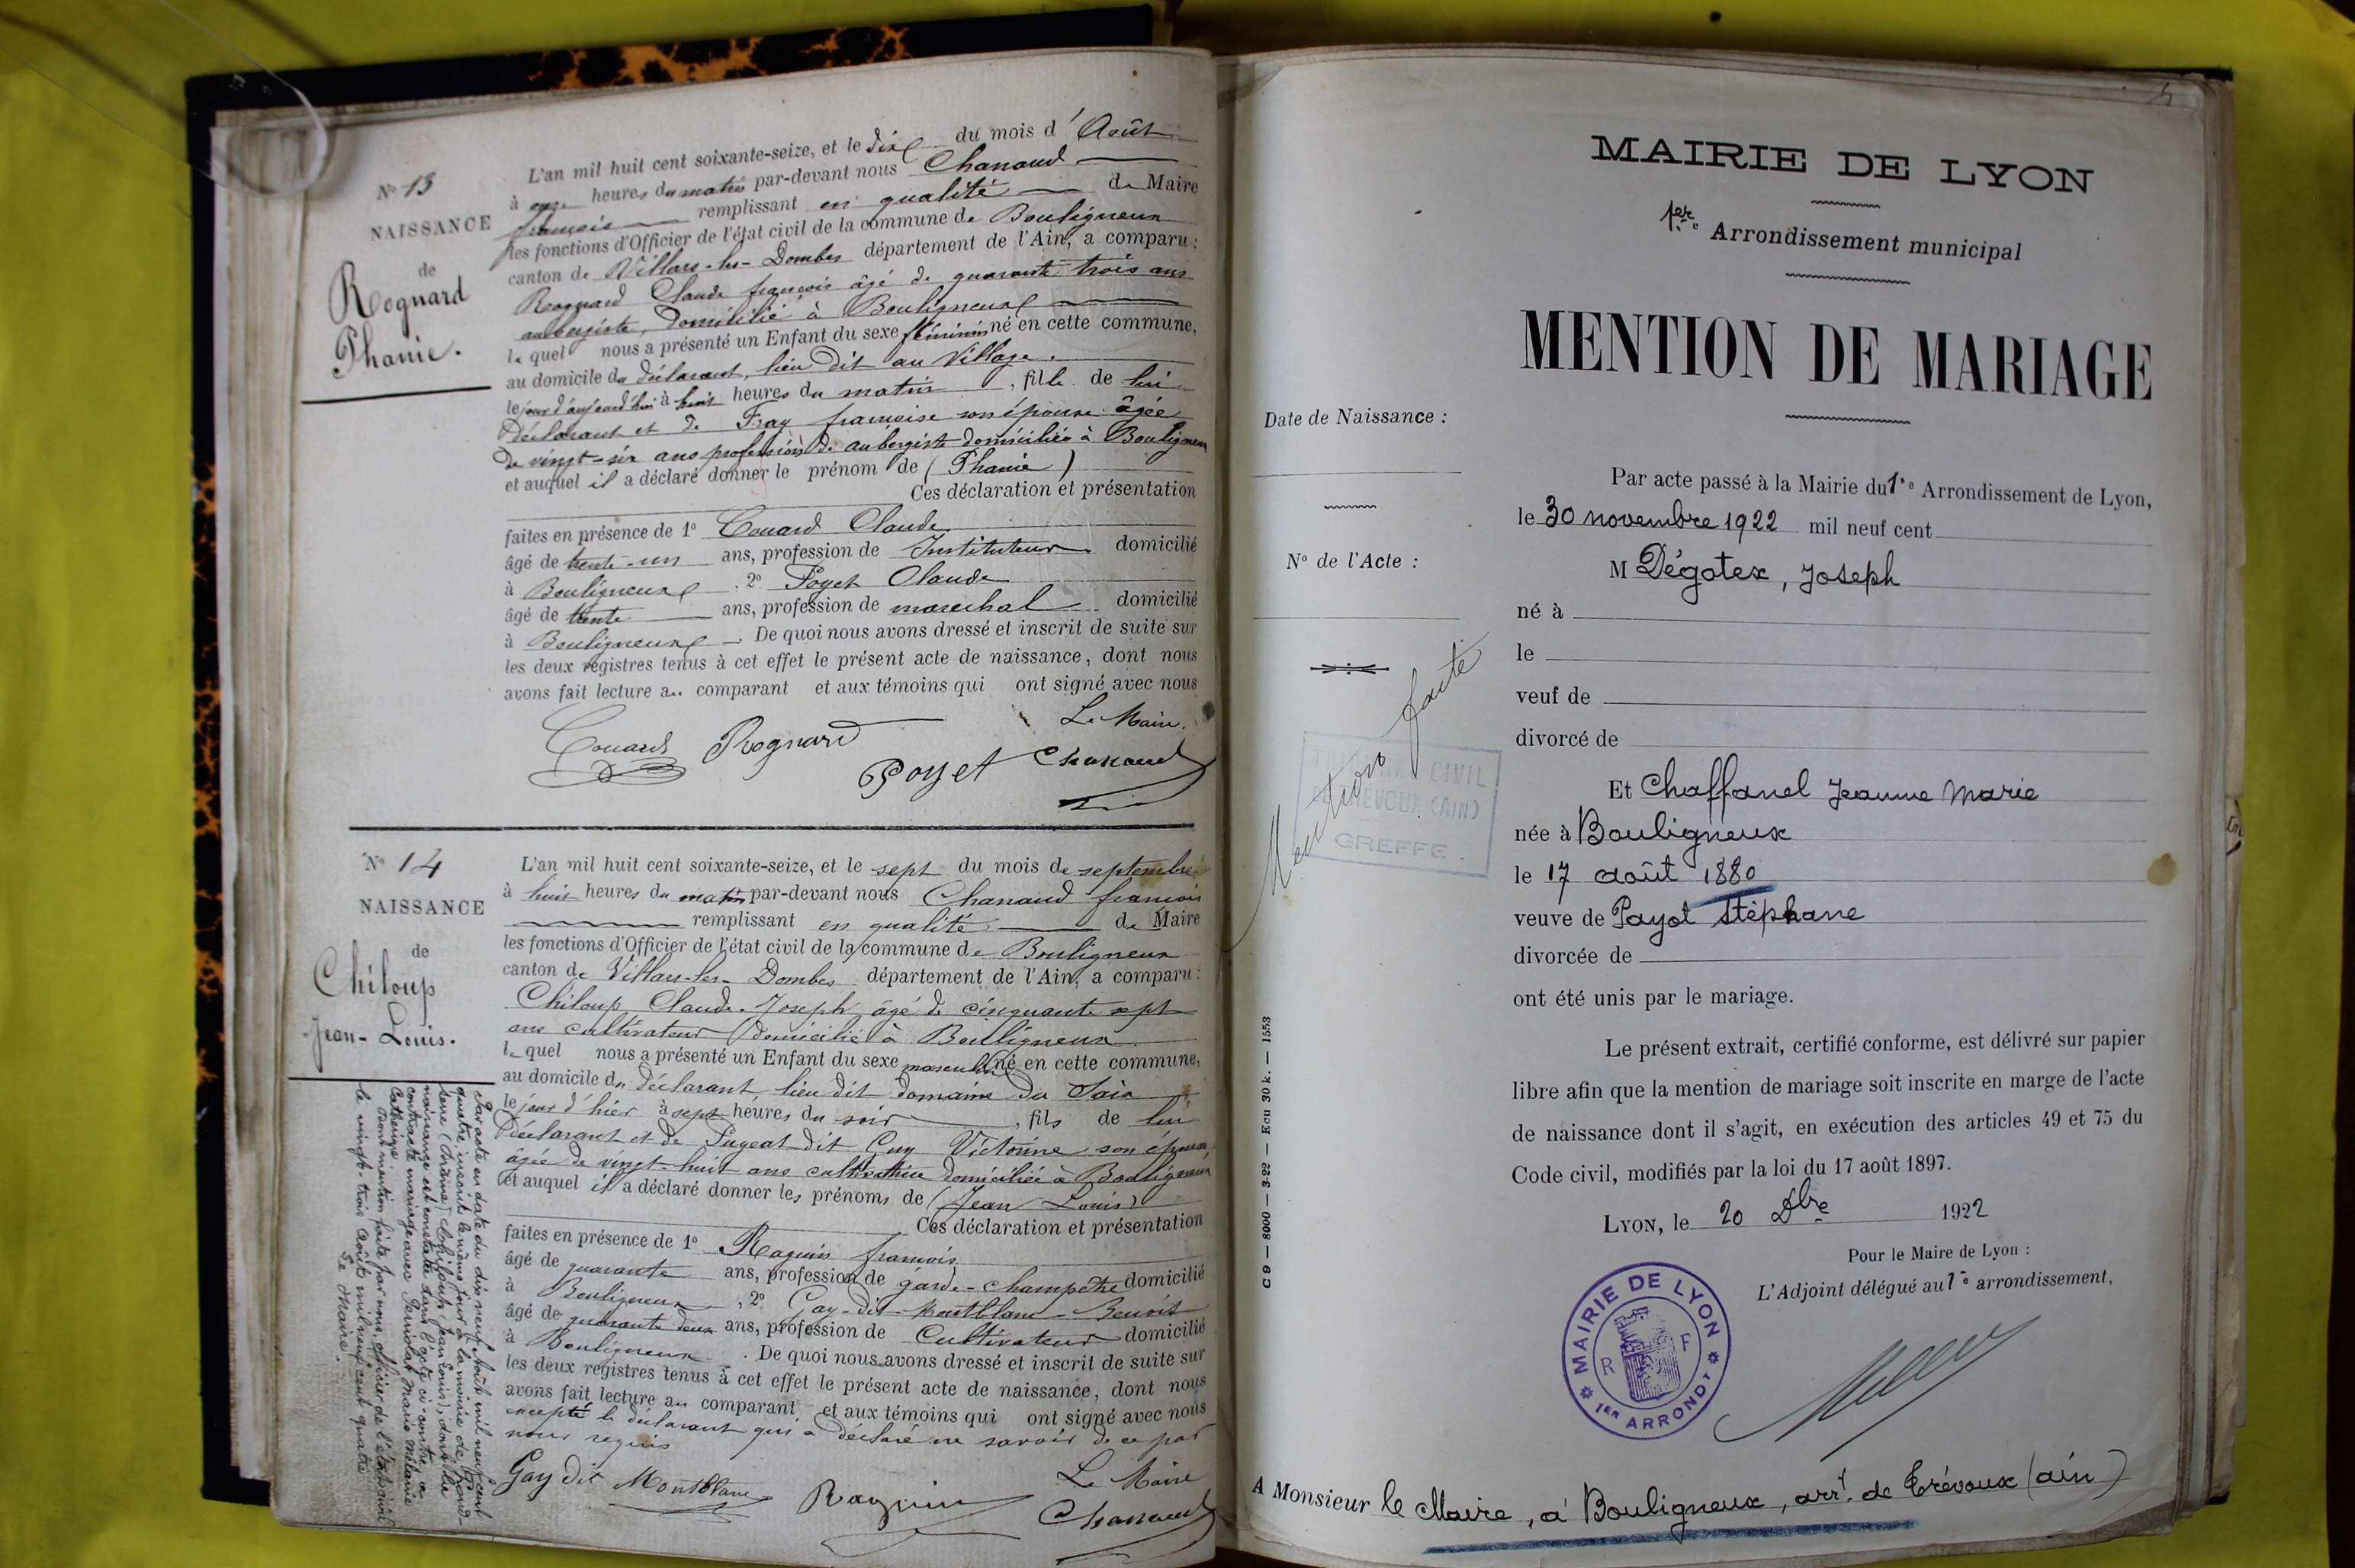 N° 13
NAISSANCE
de
Rognard
Phanie.
L'an mil huit cent soixante-seize, et le dix du mois d'Août
à onze heures du matin par-devant nous Chanaud
françois remplissant en qualité de Maire
les fonctions d'Officier de l'état civil de la commune de Bouligneux
canton de Villars-les-Dombes département de l'Ain, a comparu :
Rognard Claude françois âgé de quarante trois ans
aubergiste, domicilié à Bouligneux
lequel nous a présenté un Enfant du sexe féminin né en cette commune,
au domicile du déclarant, lieu dit au Village.
le jour d'aujourd'hui à huit heures du matin, fille de lui
déclarant et de Fray françoise son épouse âgée
de vingt-six ans profession d'aubergiste domiciliée à Bouligneux
et auquel il a déclaré donner le prénom de (Phanie)
Ces déclaration et présentation
faites en présence de 1° Couard Claude
âgé de trente-un ans, profession de Instituteur domicilié
à Bouligneux . 2° Poyet Claude
âgé de trente ans, profession de marechal domicilié
à Bouligneux . De quoi nous avons dressé et inscrit de suite sur
les deux registres tenus à cet effet le présent acte de naissance, dont nous
avons fait lecture au comparant et aux témoins qui ont signé avec nous
Le Maire.
Couard Rognard
Poyet Chanaud
N° 14
NAISSANCE
de
Chiloup
Jean-Louis.
L'an mil huit cent soixante-seize, et le sept du mois de septembre
à huit heures du matin par-devant nous Chanaud françois
remplissant en qualité de Maire
les fonctions d'Officier de l'état civil de la commune de Bouligneux
canton de Villars-les-Dombes département de l'Ain, a comparu :
Chiloup Claude-Joseph âgé de cinquante sept
ans cultivateur domicilié à Bouligneux
lequel nous a présenté un Enfant du sexe masculin né en cette commune,
au domicile du déclarant, lieu dit domaine du
le jour d'hier à sept heures du soir, fils de lui
déclarant et de Pugeat dit Guy Victorine son épouse
âgée de vingt-huit ans cultivatrice domiciliée à Bouligneux
et auquel il a déclaré donner les prénoms de (Jean Louis)
Ces déclaration et présentation
faites en présence de 1° Raquin françois
âgé de quarante ans, profession de garde-champêtre domicilié
à Bouligneux, 2° Gay-dit-Montblanc-Benoit
âgé de quarante deux ans, profession de Cultivateur domicilié
à Bouligneux . De quoi nous avons dressé et inscrit de suite sur
les deux registres tenus à cet effet le présent acte de naissance, dont nous
avons fait lecture au comparant et aux témoins qui ont signé avec nous
excepté le déclarant qui a déclaré ne savoir de ce par
nous requis
Le Maire
Gay dit Montblanc Raquin Chanaud
Par acte en date du dix neuf Août mil neuf cent
quatre, inscrit le même jour à la mairie de
(Chiloup Jean Louis), dont la
naissance est constatée dans l'acte ci-contre, a
contracté mariage avec Marie Mélanie
Catherine.
Dont mention faite par nous, officier de l'état civil
le vingt-trois Août mil neuf cent quatre
Le Maire.
MAIRIE DE LYON
1er Arrondissement municipal
MENTION DE MARIAGE
Date de Naissance :
N° de l'Acte :
Mention faite
TRIBUNAL CIVIL
DE TRÉVOUX (AIN)
GREFFE.
C 9 — 8000 — 3-22 — Ecu 30 k. — 1553
Par acte passé à la Mairie du 1er Arrondissement de Lyon,
le 30 novembre 1922 mil neuf cent
M Dégotex, Joseph
né à
le
veuf de
divorcé de
Et Chaffanel Jeanne Marie
née à Bouligneux
le 17 août 1880
veuve de Payot Stéphane
divorcée de
ont été unis par le mariage.
Le présent extrait, certifié conforme, est délivré sur papier
libre afin que la mention de mariage soit inscrite en marge de l'acte
de naissance dont il s'agit, en exécution des articles 49 et 75 du
Code civil, modifiés par la loi du 17 août 1897.
LYON, le 20 Dbre 1922
Pour le Maire de Lyon :
L'Adjoint délégué au 1er arrondissement,
MAIRIE DE LYON
R F
1ER ARRONDT
A Monsieur le Maire, à Bouligneux, arrt. de Trévoux (ain)